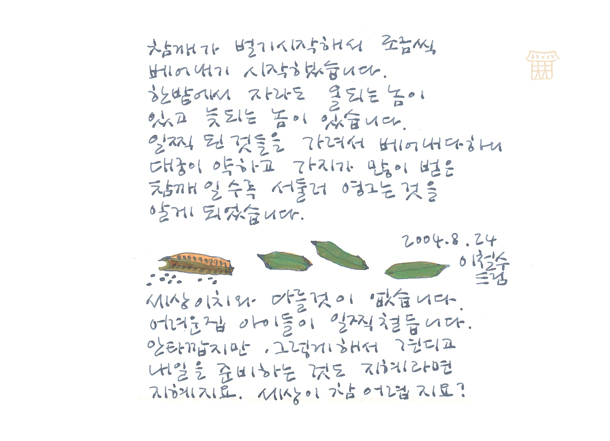 참깨가 벌기시작해서 조금씩
베어내기 시작했습니다.
한밭에서 자라도 올되는 놈이
있고 늦되는 놈이 있습니다.
일찍 된 것들을 가려서 베어내다하니
대궁이 약하고 가지가 많이 벌은
참깨일수록 서둘러 영그는것을
알게 되었습니다.
2004.8.24
이철수
드림
세상이치와 다를것이 없습니다.
어려운집 아이들이 일찍철듭니다.
안타깝지만, 그렇게해서 견디고
내일을 준비하는 것도 지혜라면
지혜지요. 세상이 참 어렵지요?